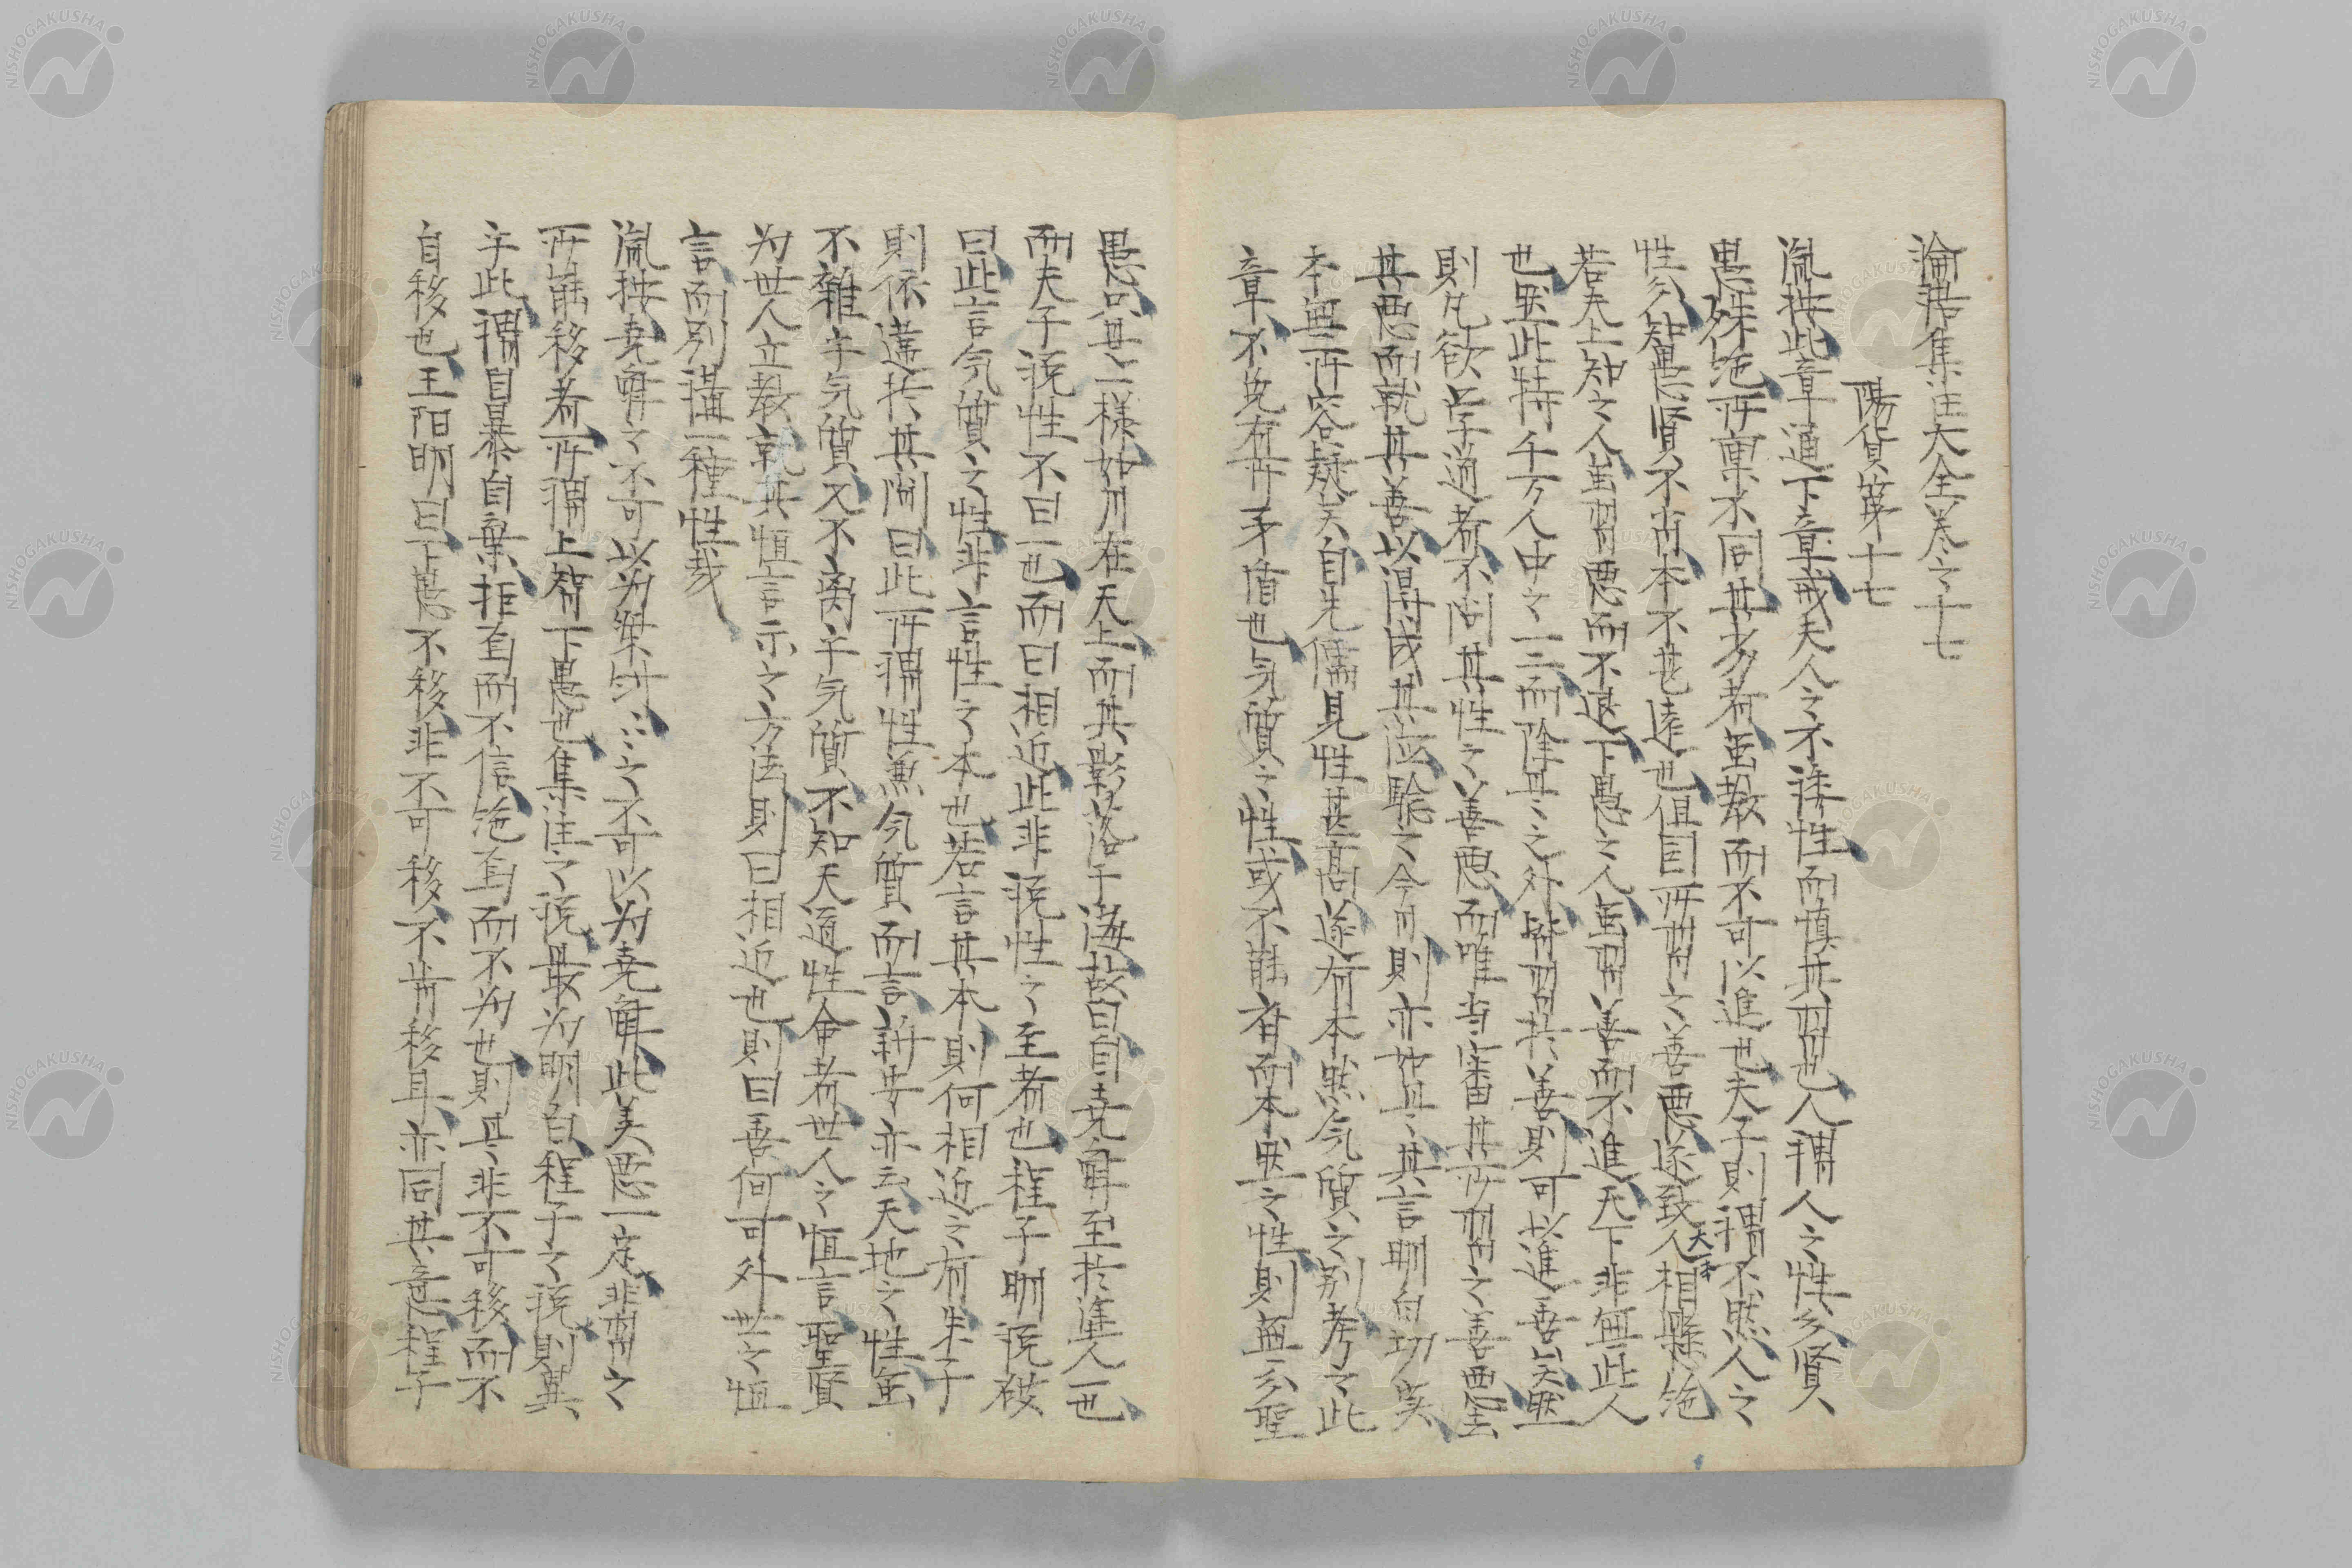 論語集注大全巻之十七
陽貨第十七
胤按此章通下章戒夫人之不諉性而慎其習也人謂人之性分賢
愚殊絶所稟不同其劣者虽教而不可以進也夫子則謂不然人之
性分知愚賢不肖本不甚遠也但因所習之善悪遂致人相懸絶
若夫上知之人虽習悪而不退下愚之人虽習善而不進天下非無此人
也然此特千万人中之一二而除其之外皆習於善則可以進善矣然
則凡欲学道者不問其性之善悪而唯当審其所習之善悪去
其悪而就其善以得成其德之今則亦如其言明白切実
本無所容疑矣自先儒見性甚高遂有本然気質之別考之此
章不免有所矛盾也気質之性或不能有而本然之性則無分聖
愚只其一様如月在天上而其影落于海故曰自堯舜至於塗人一也
而夫子説性不曰一也而曰相近此非説性之至者也程子明説破
曰此言気質之性非言性之本也若言其本則何相近之有朱子
則依違於其間曰此所謂性兼気質而言許亦云天地之性虽
不雜乎気質又不离乎気質不知天道性命者世人之恒言聖賢
为世人立教就其恒言示之方法則曰相近也則曰善何可外世之恒
言而別講一種性哉
胤按堯舜之不可以为桀紂ミミ之不可以为堯舜此美悪一定非習之
所能移者所謂上智下愚也集注之説最为明白程子之説則異
乎此謂自暴自棄拒焉而不信絶焉而不为也則其非不可移而不
自移也王阳明曰下愚不移非不可移不肯移耳亦同其意程子
NISHOGAKUSHA